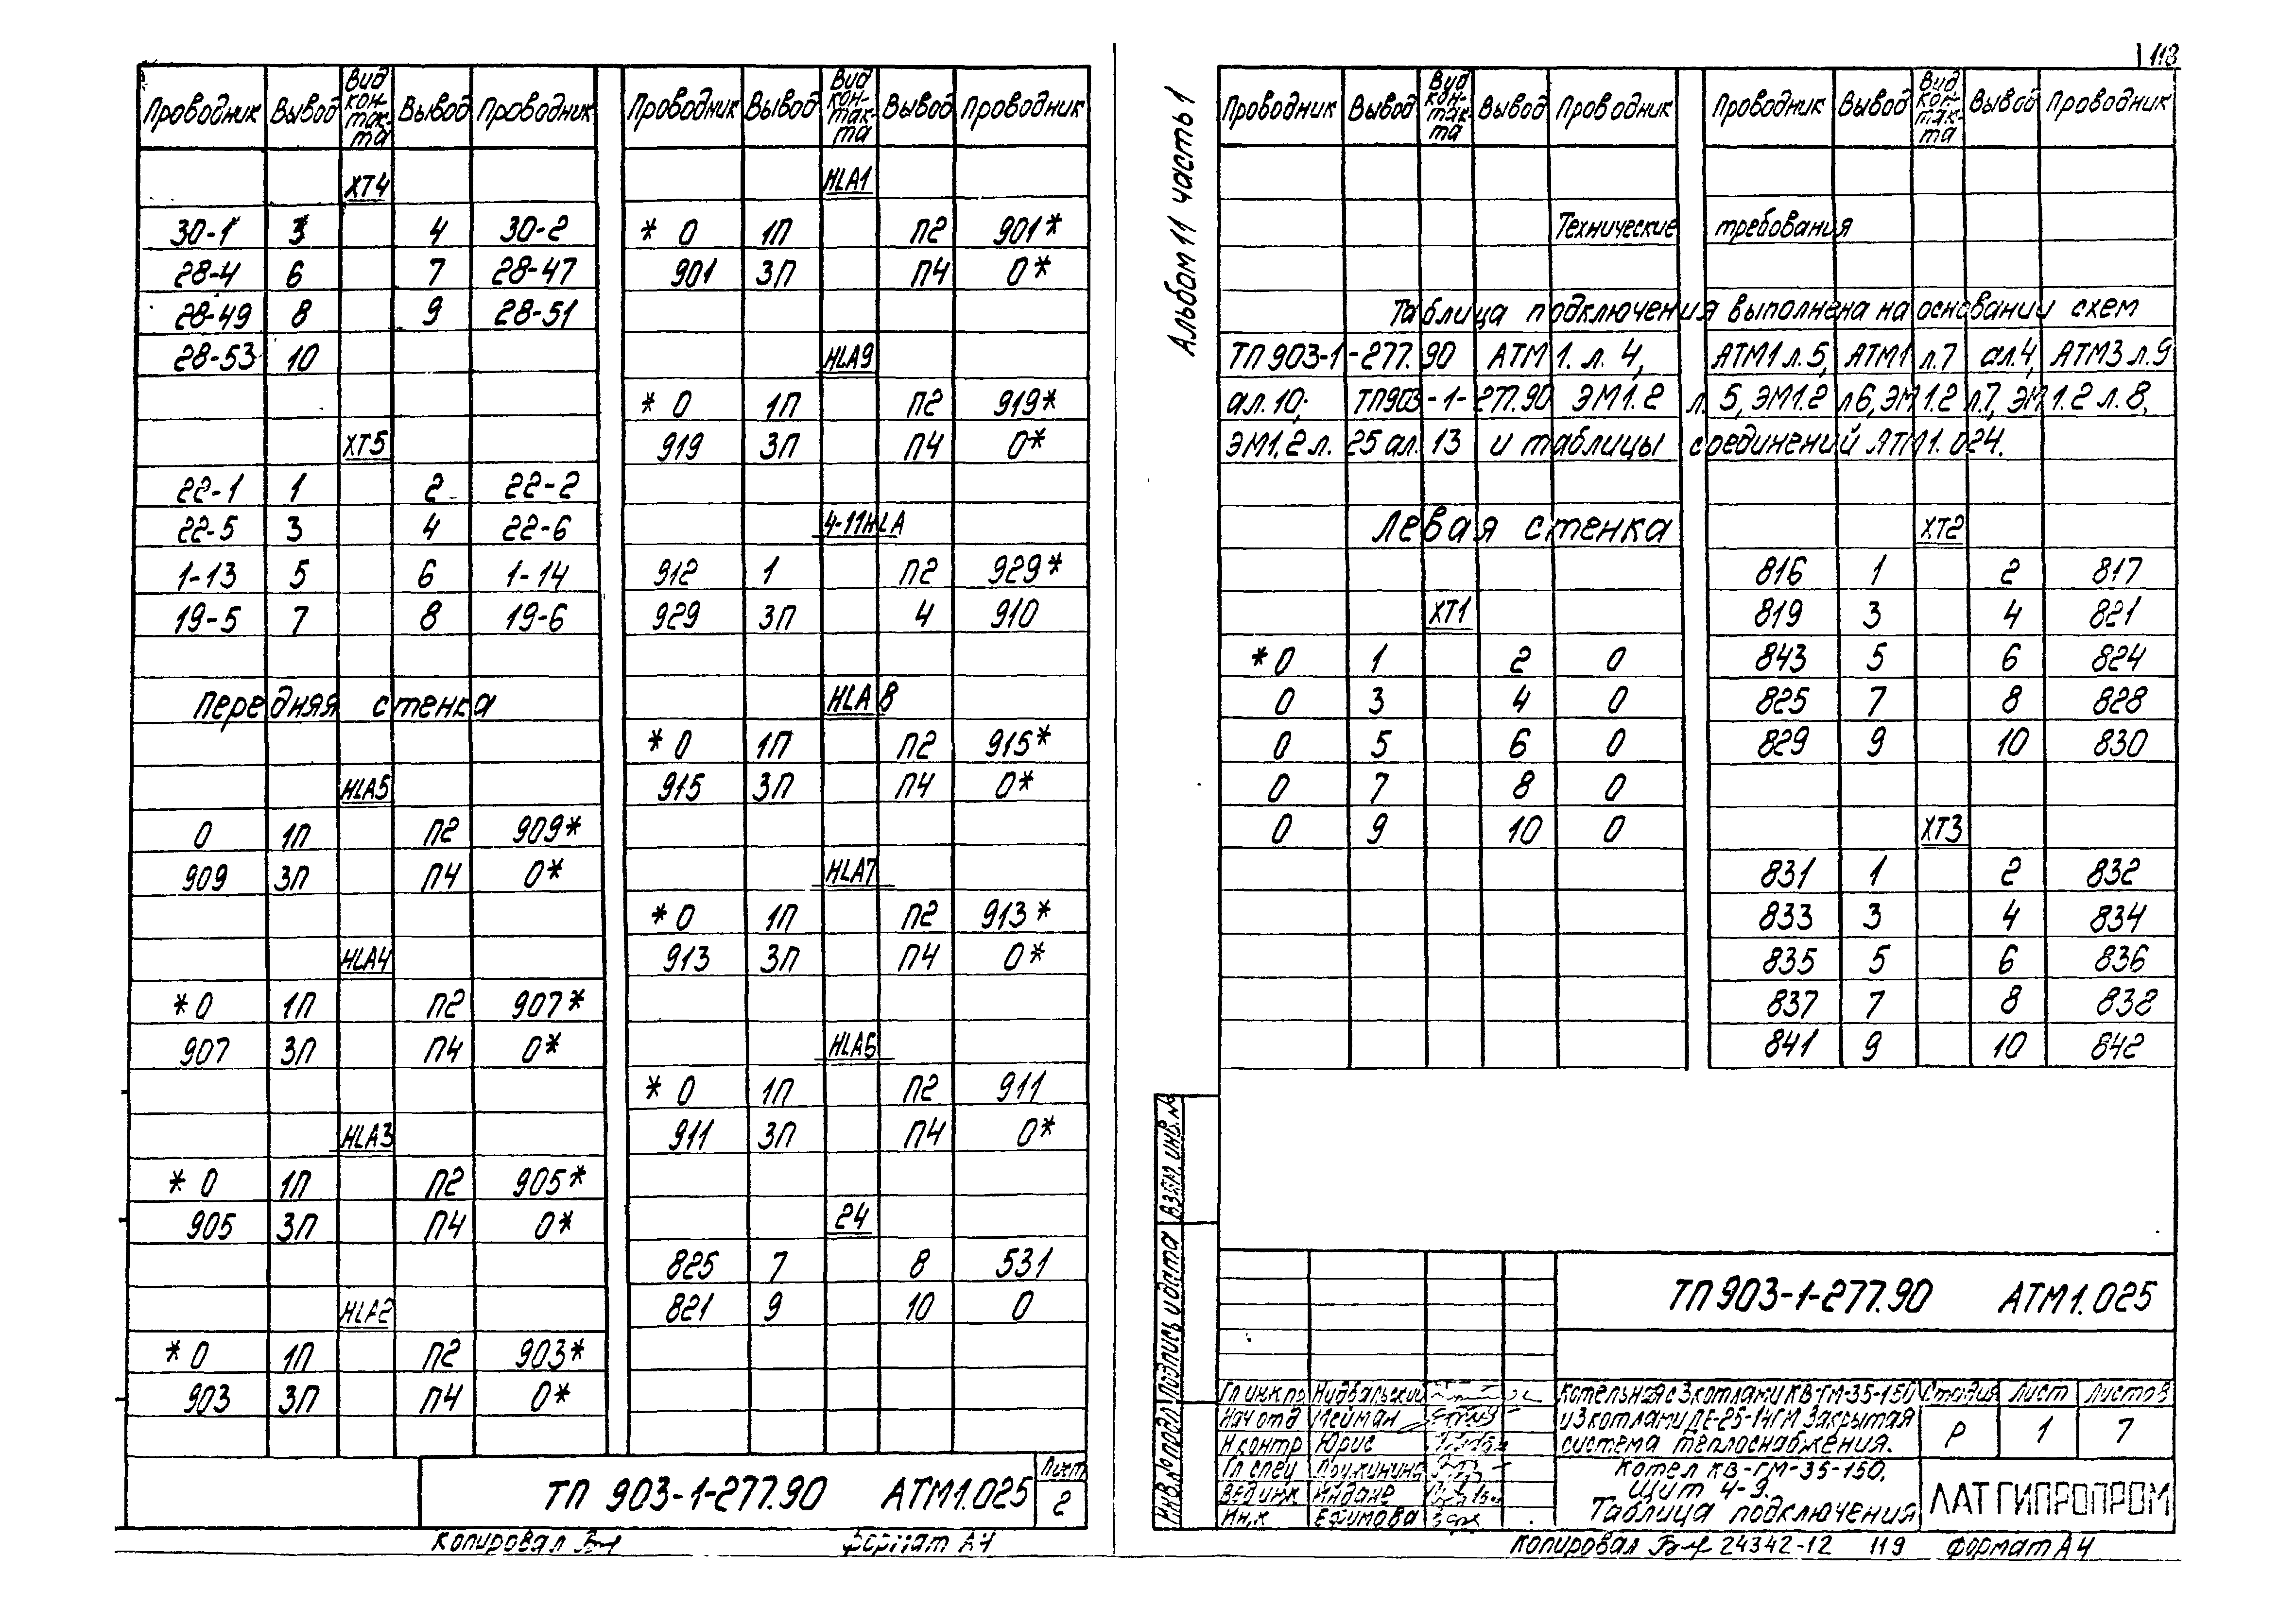 Проводник Вывод Вид контакта Вывод Проводник
XT4
30-1 3 4 30-2
28-4 6 7 28-47
28-49 8 9 28-51
28-53 10
XT5
22-1 1 2 22-2
22-5 3 4 22-6
1-13 5 6 1-14
19-5 7 8 19-6
Передняя стенка
HLA5
0 1П П2 909*
909 3П П4 0*
HLA4
*0 1П П2 907*
907 3П П4 0*
HLA3
*0 1П П2 905*
905 3П П4 0*
HLA2
*0 1П П2 903*
903 3П П4 0*
Проводник Вывод Вид контакта Вывод Проводник
HLA1
*0 1П П2 901*
901 3П П4 0*
HLA9
*0 1П П2 919*
919 3П П4 0*
4-11HLA
912 1 П2 929*
929 3П 4 910
HLA8
*0 1П П2 915*
915 3П П4 0*
HLA7
*0 1П П2 913*
913 3П П4 0*
HLA6
*0 1П П2 911
911 3П П4 0*
24
825 7 8 531
821 9 10 0
ТП 903-1-277.90 АТМ1.025
Лист
2
Копировал
формат А4
118
Альбом 11 часть 1
Проводник Вывод Вид контакта Вывод Проводник
Проводник Вывод Вид контакта Вывод Проводник
Технические требования
Таблица подключения выполнена на основании схем
ТП 903-1-277.90 АТМ 1. л. 4, АТМ1 л.5, АТМ1 л.7 ал.4, АТМ3 л.9
ал. 10; ТП903-1-277.90 ЭМ1.2 л. 5, ЭМ1.2 л6, ЭМ1.2 л.7, ЭМ1.2 л.8,
ЭМ1.2 л. 25 ал. 13 и таблицы соединений АТМ1.024.
Левая стенка
XT1
*0 1 2 0
0 3 4 0
0 5 6 0
0 7 8 0
0 9 10 0
XT2
816 1 2 817
819 3 4 821
843 5 6 824
825 7 8 828
829 9 10 830
XT3
831 1 2 832
833 3 4 834
835 5 6 836
837 7 8 838
841 9 10 842
Взам. инв. №
Подпись и дата
Инв. № подл.
ТП 903-1-277.90 АТМ1.025
Гл инж пр
Нач отд Мейман
Н контр Юрис
Гл спец
Вед инж
Инж Ефимова
Котельная с 3 котлами КВ-ГМ-35-150
и 3 котлами ДЕ-25-14ГМ Закрытая
система теплоснабжения.
Стадия Лист Листов
Р 1 7
Котел КВ-ГМ-35-150.
Щит 4-9.
Таблица подключения
ЛАТГИПРОПРОМ
Копировал 24342-12 119 формат А4